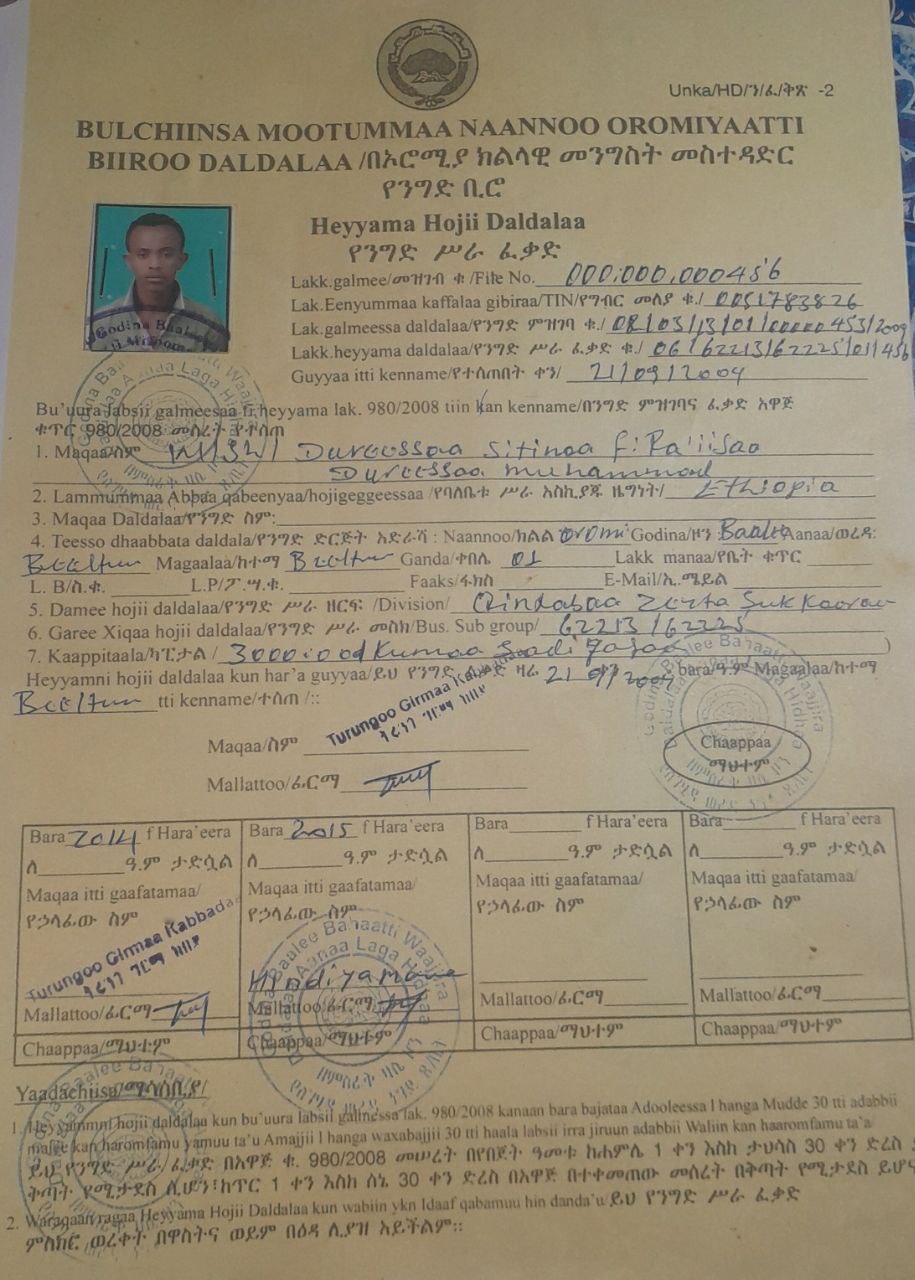 Unka/HD/ን/ፈ/ቅጽ -2
BULCHIINSA MOOTUMMAA NAANNOO OROMIYAATTI
BIIROO DALDALAA /በኦሮሚያ ክልላዊ መንግስት መስተዳድር
የንግድ ቢሮ
Heyyama Hojii Daldalaa
የንግድ ሥራ ፈቃድ
Lakk.galmee/መዝገብ ቁ /File No. 000.000.000456
Lak.Eenyummaa kaffalaa gibiraa/TIN/የግብር መለያ ቁ./ 0051783826
Lak.galmeessa daldalaa/የንግድ ምዝገባ ቁ./ 453/2009
Lakk.heyyama daldalaa/የንግድ ሥራ ፈቃድ ቁ./ 06/62213/62225/01/456
Guyyaa itti kenname/የተሰጠበት ቀን/ 21/09/2009
Bu'uura labsii galmeesaa fi heyyama lak. 980/2008 tiin kan kenname/በንግድ ምዝገባና ፈቃድ አዋጅ
ቁጥር 980/2008 መሰረት የተሰጠ
1. Maqaa/ስም Dureessaa Sitinaa fi Ra'iisaa
Dureessaa muhammad
2. Lammummaa Abbaa qabeenyaa/hojigeggeessaa /የባለቤቱ ሥራ አስኪያጁ ዜግነት/ Ethiopia
3. Maqaa Daldalaa/የንግድ ስም:
4. Teesso dhaabbata daldala/የንግድ ድርጅት አድራሻ : Naannoo/ክልል oromi Godina/ዞን Baalee Aanaa/ወረዳ:
Beeltuu Magaalaa/ከተማ Beeltuu Ganda/ቀበሌ 01 Lakk manaa/የቤት ቁጥር
L. B/ስ.ቁ. L.P/ፖ.ሣ.ቁ. Faaks/ፋክስ E-Mail/ኢ.ሜይል
5. Damee hojii daldalaa/የንግድ ሥራ ዘርፍ /Division/ Qindabaa Zeita Sukkaaraa
6. Garee Xiqaa hojii daldalaa/የንግድ ሥራ መስክ/Bus. Sub group/ 62213/62225
7. Kaappitaala/ካፒታል / 3000.00 Kumaa )
Heyyamni hojii daldalaa kun har'a guyyaa/ይህ የንግድ ፈቃድ ዛሬ 21/9/2009 ቀን bara/ዓ.ም Magaalaa/ከተማ
Beeltuu tti kenname/ተሰጠ /::
Maqaa/ስም Turungoo Girmaa
Mallattoo/ፊርማ
Chaappaa
ማህተም
Bara 2014 f Hara'eera Bara 2015 f Hara'eera Bara f Hara'eera Bara f Hara'eera
ለ ዓ.ም ታድሷል ለ ዓ.ም ታድሷል ለ ዓ.ም ታድሷል ለ ዓ.ም ታድሷል
Maqaa itti gaafatamaa/ Maqaa itti gaafatamaa/ Maqaa itti gaafatamaa/ Maqaa itti gaafatamaa/
የኃላፊው ስም የኃላፊው ስም የኃላፊው ስም የኃላፊው ስም
Turungoo Girmaa Kabbadaa
Mallattoo/ፊርማ Mallattoo/ፊርማ Mallattoo/ፊርማ Mallattoo/ፊርማ
Chaappaa/ማህተም Chaappaa/ማህተም Chaappaa/ማህተም Chaappaa/ማህተም
Yaadachiisa/ማሳሰቢያ/
1. Heyyammni hojii daldalaa kun bu'uura labsii galmessa lak. 980/2008 kanaan bara bajataa Adooleessa I hanga Mudde 30 tti adabbii
malee kan haromfamu yamuu ta'u Amajjii I hanga waxabajjii 30 tti haala labsii irra jiruun adabbii Waliin kan haaromfamu ta'a
ይህ የንግድ ሥራ ፈቃድ በአዋጅ ቁ. 980/2008 መሠረት በየበጀት ዓመቱ ከሐምሌ 1 ቀን እስከ ታህሳስ 30 ቀን ድረስ
ቅጣት የሚታደስ ሲሆን፣ከጥር 1 ቀን እስከ ሰኔ 30 ቀን ድረስ በአዋጅ በተቀመጠው መሰረት በቅጣት የሚታደስ
2. Waraqaan ragaa Heyyama Hojii Daldalaa kun wabiin ykn Idaaf qabamuu hin danda'u ይህ የንግድ ሥራ ፈቃድ
ምስክር ወረቀት በዋስትና ወይም በዕዳ ሊያዝ አይችልም::